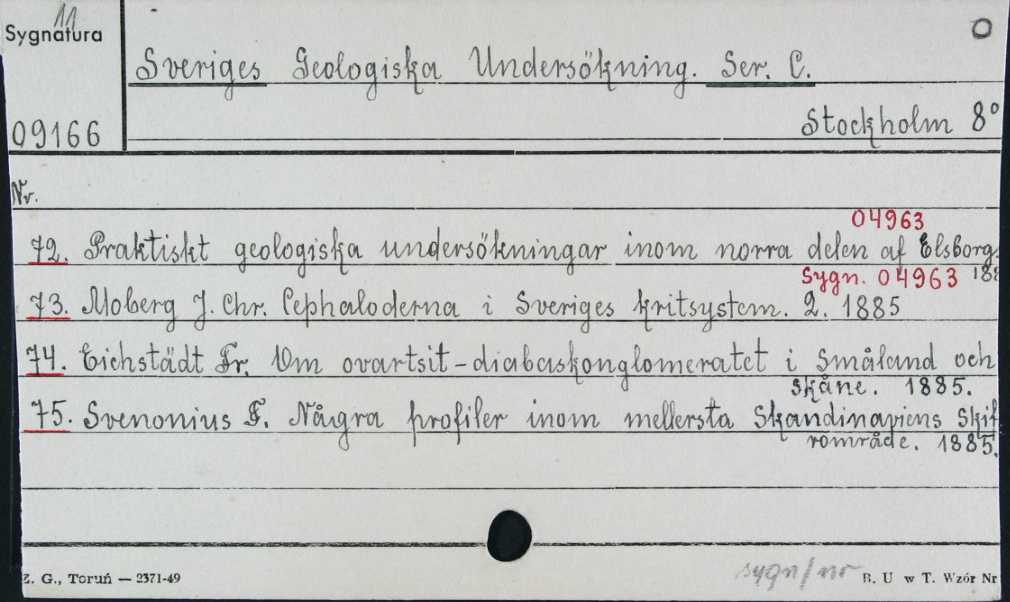 11
Sygnatura
O
Sveriges Geologiska Undersökning. Ser. C.
09166
Stockholm 8°
Nr.
04963
72. Praktiskt geologiska undersökningar inom norra delen af Elsborgs
Sygn. 04963 188
73. Moberg J. Chr. Cephaloderna i Sveriges kritsystem. 2. 1885
74. Eichstädt Fr. Om ovartsit-diabaskonglomeratet i Småland och
Skåne. 1885.
75. Svenonius F. Några profiler inom mellersta Skandinaviens Skif
rområde. 1885.
sygn/nr
Z. G., Toruń — 2371-49
B. U w T. Wzór Nr